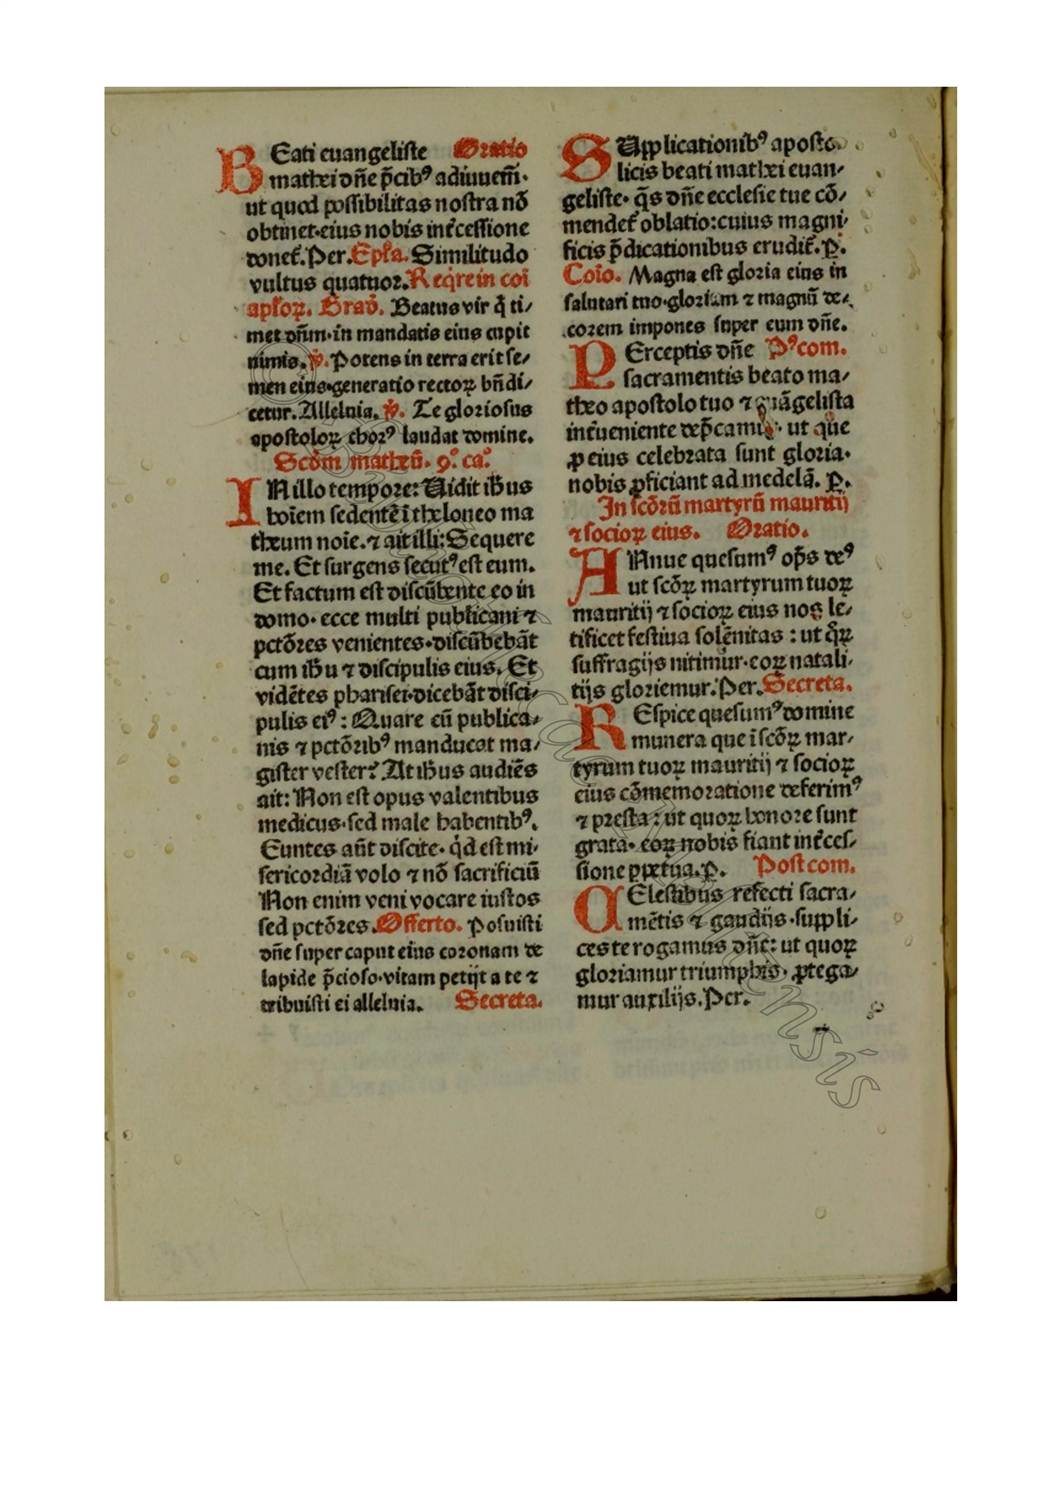 Beati euangeliste Oratio
mathei dñe p̃cibꝰ adiuuem̃·
ut quod possibilitas nostra nõ
obtinet·eius nobis int̃cessione
donet̃. Per. Epl̃a. Similitudo
vultus quatuor. Req̃re in coi
apl̃oꝝ. Grad̃. Beatus vir q̃ ti⸗
met dñm·in mandatis eius cupit
nimis. ℣. Potens in terra erit se⸗
men eius·generatio rectoꝝ bñdi⸗
cetur. Alleluia. ℣. Te gloriosus
apostoloꝝ chorꝰ laudat domine.
Scďm matheũ. 9.° ca.°
IN illo tempore: Uidit ihus
hoĩem sedentẽ ĩ theloneo ma
theum noĩe. ⁊ ait illi: Sequere
me. Et surgens secutꝰ est eum.
Et factum est discũbente eo in
domo· ecce multi publicani ⁊
pctõres venientes·discũbebãt
cum ihu ⁊ discipulis eius. Et
vidẽtes pharisei·dicebãt disci⸗
pulis eiꝰ: Quare cũ publica⸗
nis ⁊ pctõribꝰ manducat ma⸗
gister vester? At ihus audiẽs
ait: Non est opus valentibus
medicus·sed male habentibꝰ.
Euntes aũt discite· q̇d est mi⸗
sericordiã volo ⁊ nõ sacrificiũ
Non enim veni vocare iustos
sed pctõres. Offerto. Posuisti
dñe super caput eius coronam de
lapide p̃cioso·vitam petijt a te ⁊
tribuisti ei alleluia. Secreta.
Supplicationibꝰ aposto⸗
licis beati mathei euan⸗
geliste· q̃s dñe ecclesie tue cõ⸗
mendet̃ oblatio: cuius magni⸗
ficis p̃dicationibus erudit̃. P̲.
Coĩo. Magna est gloria eius in
salutari tuo·gloriam ⁊ magnũ de⸗
corem impones super eum dñe.
Perceptis dñe Pꝰcom.
sacramentis beato ma⸗
theo apostolo tuo ⁊ euãgelista
int̃ueniente dep̃camur· ut que
ꝓ eius celebrata sunt gloria·
nobis ꝓficiant ad medelã. P̲.
In scõrũ martyrũ mauritij
⁊ socioꝝ eius. Oratio.
ANnue quesumꝰ op̃s deꝰ
ut scõꝝ martyrum tuoꝝ
mauritij ⁊ socioꝝ eius nos le⸗
tificet festiua solẽnitas: ut q̃ꝝ
suffragijs nitimur·eoꝝ natali⸗
tijs gloriemur. Per. Secreta.
Respice quesumꝰ domine
munera que ĩ scõꝝ mar⸗
tyrum tuoꝝ mauritij ⁊ socioꝝ
eius cõmemoratione deferimꝰ
⁊ presta: ut quoꝝ honore sunt
grata· eoꝝ nobis fiant int̃ces⸗
sione ꝑpetua. P̲. Postcom.
Celestibus refecti sacra⸗
mẽtis ⁊ gaudijs·suppli⸗
ces te rogamus dñe: ut quoꝝ
gloriamur triumphis· ꝓtega⸗
mur auxilijs. Per.